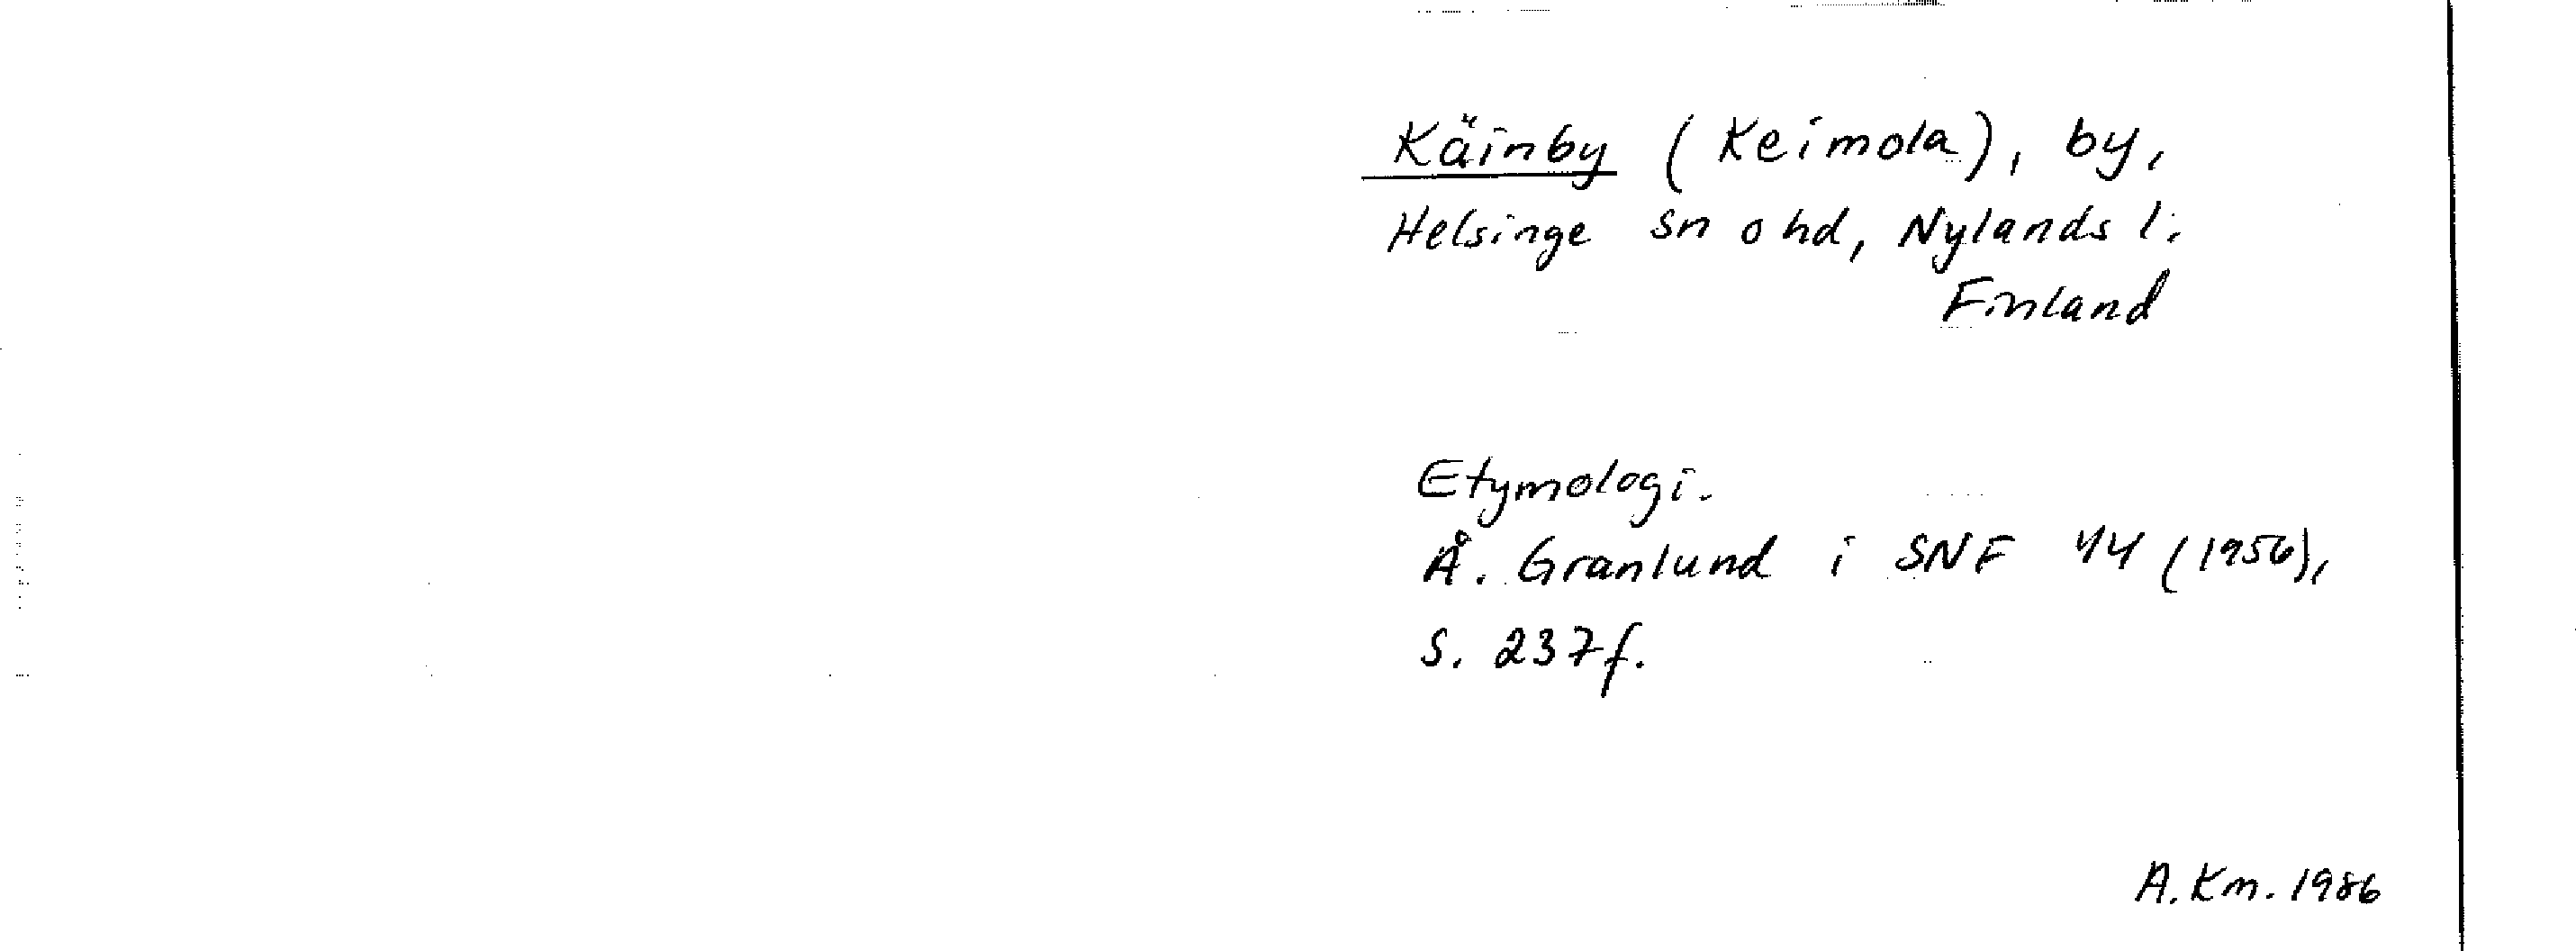 Käinby (Keimola), by,
Helsinge sn o hd, Nylands l.
Finland
Etymologi.
Å. Granlund i SNF 44 (1956),
S. 237f.
A. Km. 1986